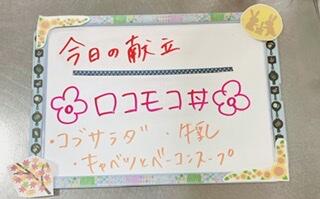 今日の献立
ロコモコ丼
・コブサラダ ・牛乳
・キャベツとベーコンスープ